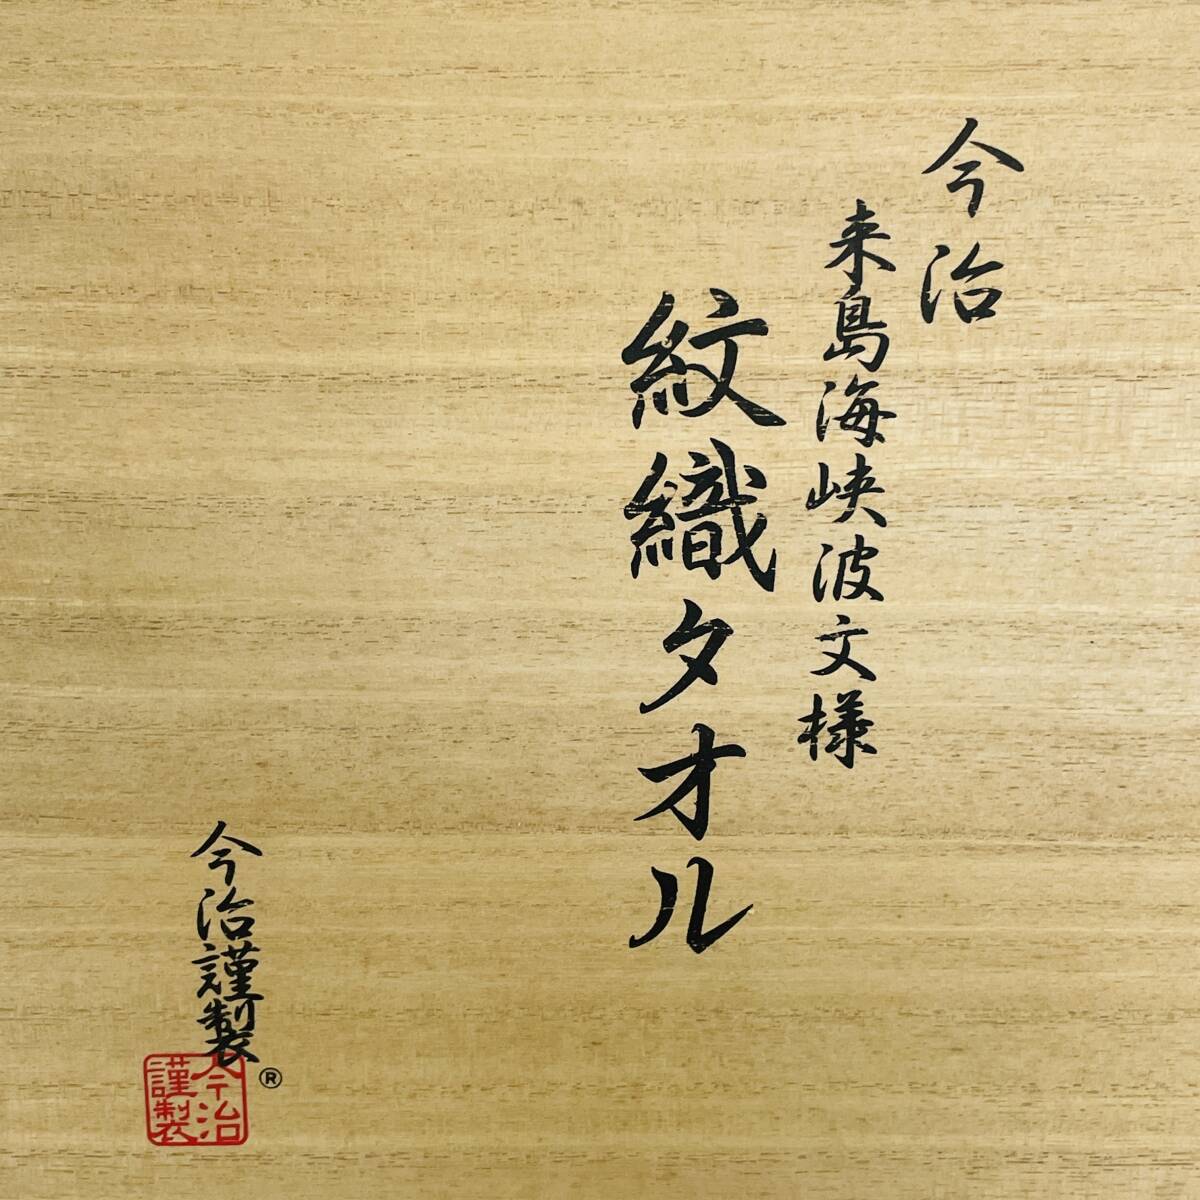 今治
来島海峡波文様
紋織タオル
今治謹製
今治
謹製
®